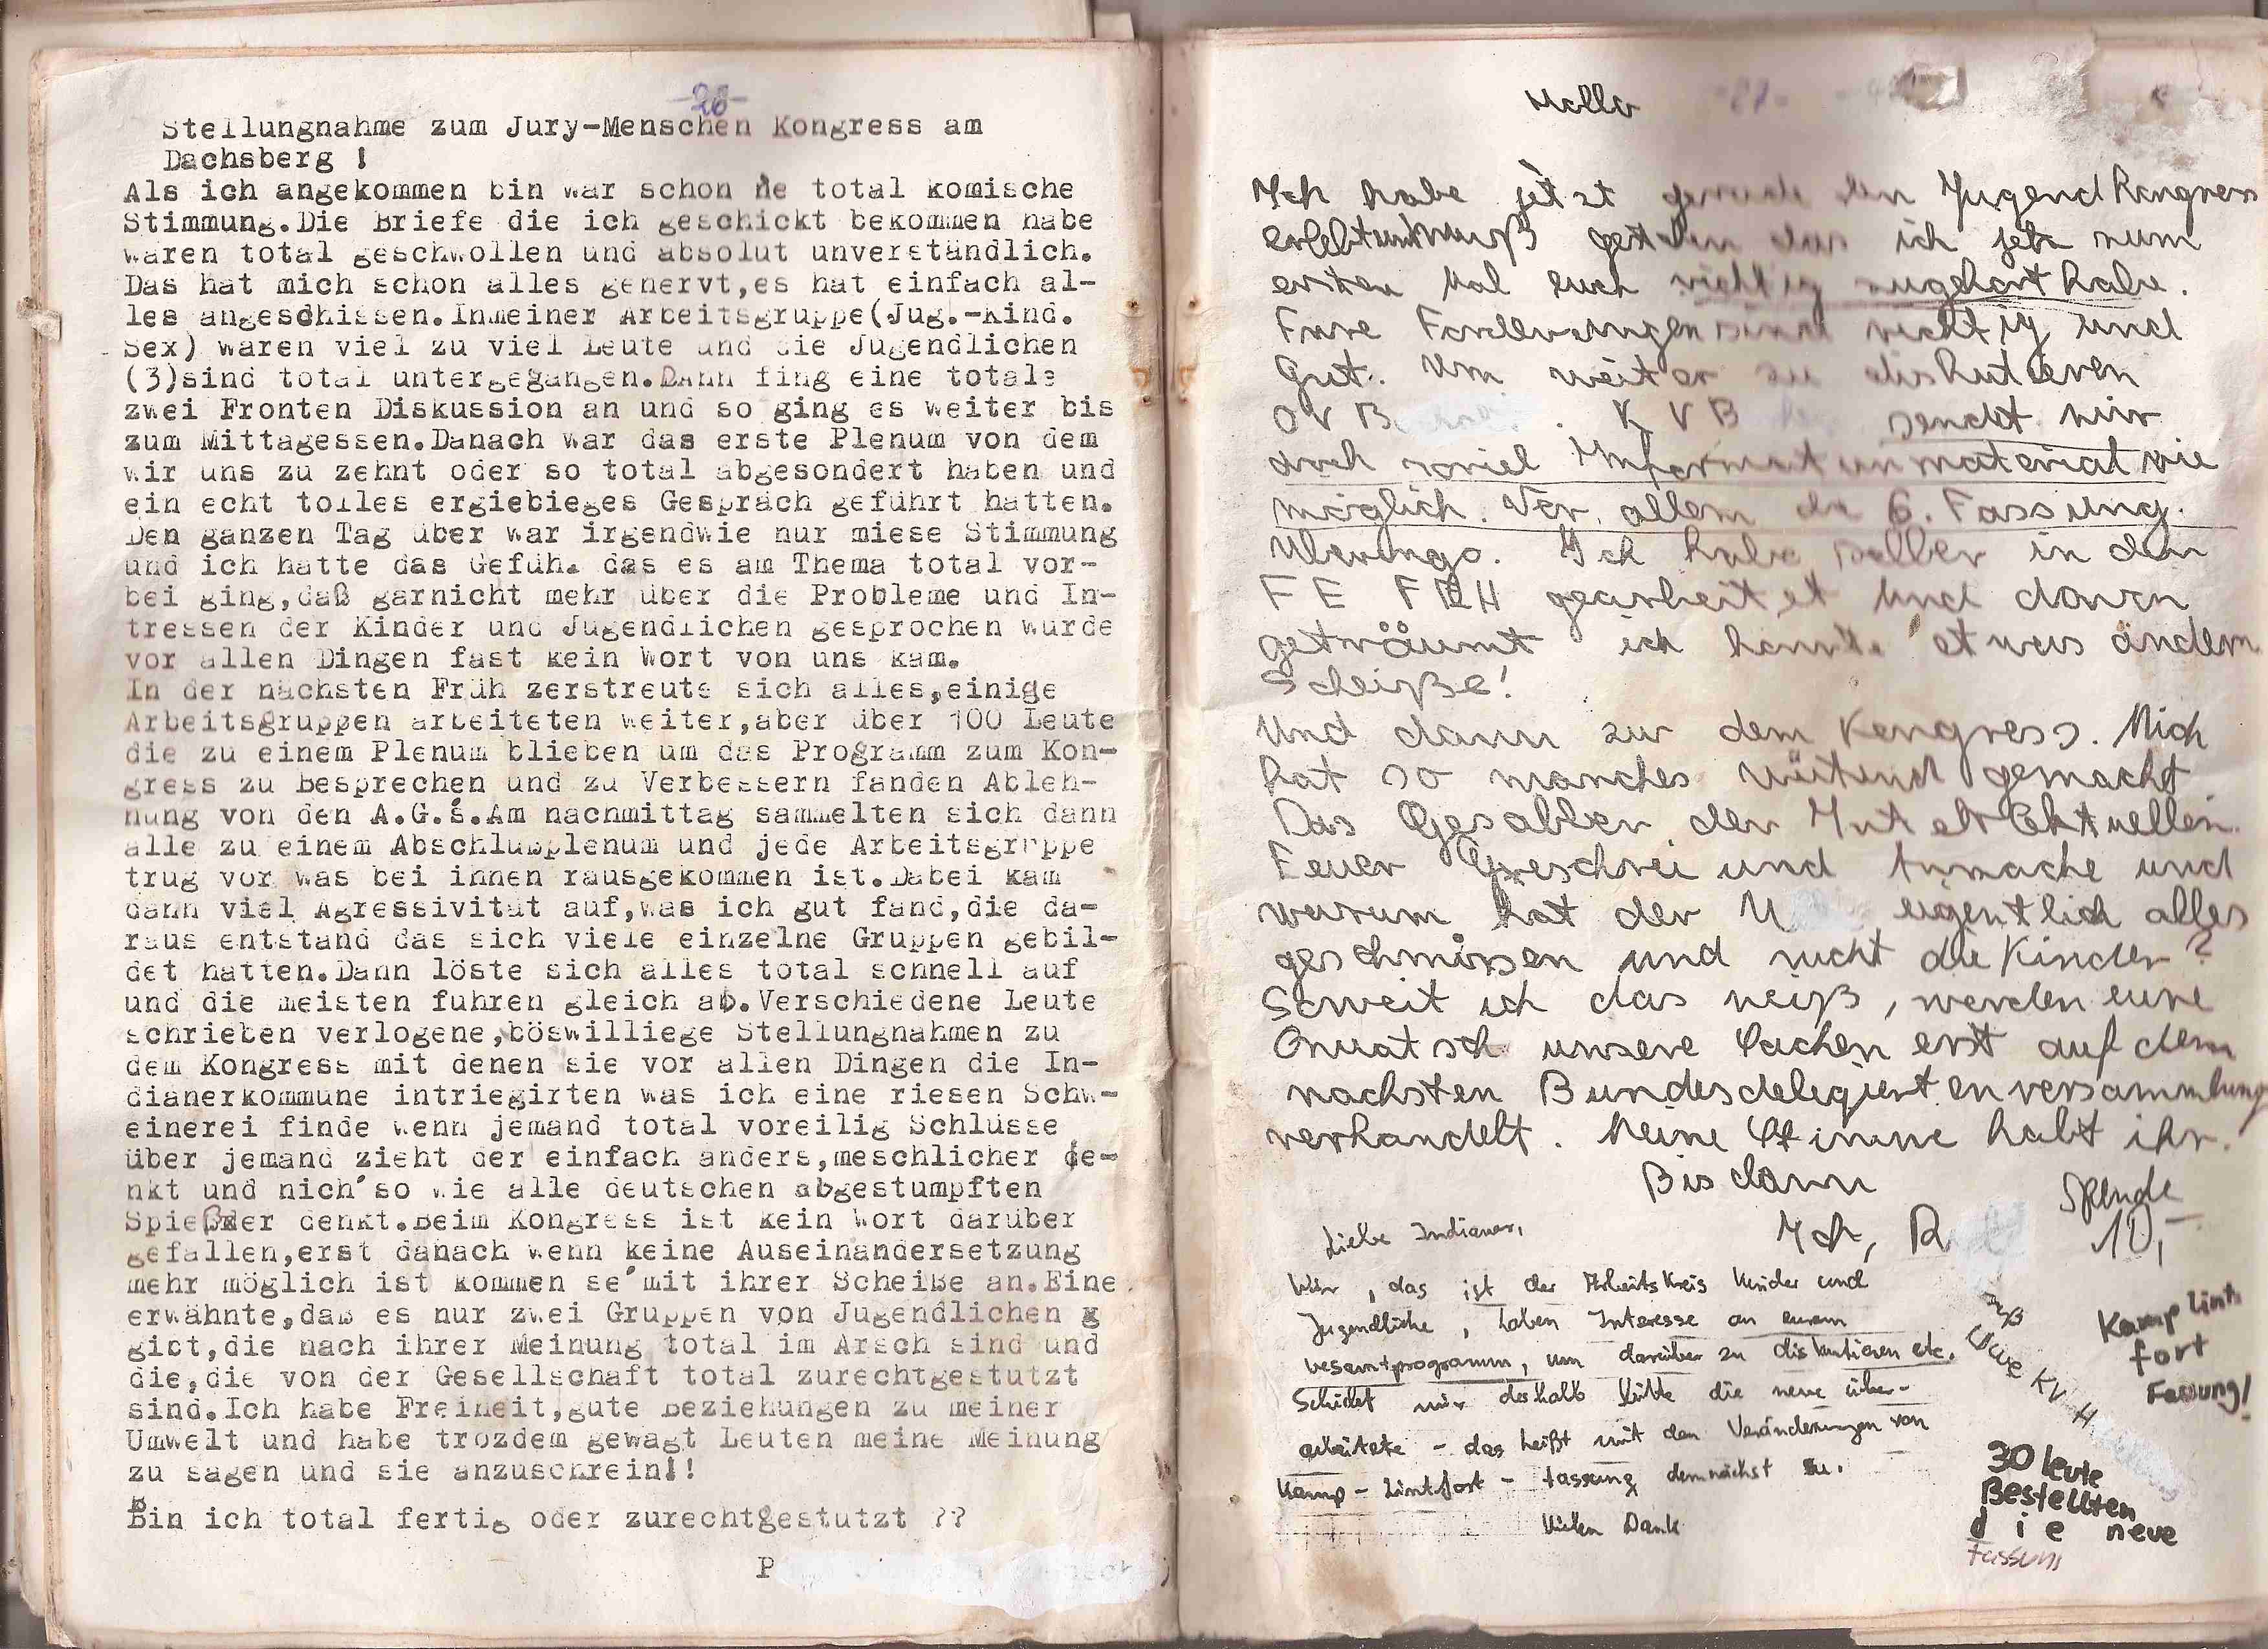 -26-
Stellungnahme zum Jury-Menschen Kongress am
Dachsberg !
Als ich angekommen bin war schon ne total komische
Stimmung.Die Briefe die ich geschickt bekommen habe
waren total geschwollen und absolut unverständlich.
Das hat mich schon alles genervt,es hat einfach al-
les angeschissen.Inmeiner Arbeitsgruppe(Jug.-Kind.
Sex) waren viel zu viel Leute und die Jugendlichen
(3)sind total untergegangen.Dann fing eine totale
zwei Fronten Diskussion an und so ging es weiter bis
zum Mittagessen.Danach war das erste Plenum von dem
wir uns zu zehnt oder so total abgesondert haben und
ein echt tolles ergiebieges Gespräch geführt hatten.
Den ganzen Tag über war irgendwie nur miese Stimmung
und ich hatte das Gefüh. das es am Thema total vor-
bei ging,daß garnicht mehr über die Probleme und In-
tressen der Kinder und Jugendlichen gesprochen wurde
vor allen Dingen fast kein Wort von uns kam.
In der nächsten Früh zerstreute sich alles,einige
Arbeitsgruppen arbeiteten weiter,aber über 100 Leute
die zu einem Plenum blieben um das Programm zum Kon-
gress zu besprechen und zu Verbessern fanden Ableh-
nung von den A.G.s.Am nachmittag sammelten sich dann
alle zu einem Abschlußplenum und jede Arbeitsgruppe
trug vor was bei ihnen rausgekommen ist.Dabei kam
dann viel Agressivität auf,was ich gut fand,die da-
raus entstand das sich viele einzelne Gruppen gebil-
det hatten.Dann löste sich alles total schnell auf
und die meisten fuhren gleich ab.Verschiedene Leute
schrieben verlogene,böswilliege Stellungnahmen zu
dem Kongress mit denen sie vor allen Dingen die In-
dianerkommune intriegirten was ich eine riesen Schw-
einerei finde wenn jemand total voreilig Schlüsse
über jemand zieht der einfach anders,meschlicher de-
nkt und nich'so wie alle deutschen abgestumpften
Spießer denkt.Beim Kongress ist kein Wort darüber
gefallen,erst danach wenn keine Auseinandersetzung
mehr möglich ist kommen se'mit ihrer Scheiße an.Eine
erwähnte,daß es nur zwei Gruppen von Jugendlichen g
gibt,die nach ihrer Meinung total im Arsch sind und
die,die von der Gesellschaft total zurechtgestutzt
sind.Ich habe Freiheit,gute Beziehungen zu meiner
Umwelt und habe trozdem gewagt Leuten meine Meinung
zu sagen und sie anzuschrein!!
Bin ich total fertig oder zurechtgestutzt ??
P
Hallo
-27-
Ich habe jetzt gerade den Jugendkongress
erlebt und muß gestehen das ich jetz zum
ersten Mal euch richtig zugehört habe.
Eure Forderungen sind richtig und
Gut. Um weiter zu diskutieren
OV B . KV B sendt mir
doch soviel Informationmaterial wie
möglich. Vor allem die 6. Fassung.
Übringo. Ich habe selber in den
FE FEH gearbeitet und davon
geträumt ich konnte etwas ändern
Scheiße!
Und dann zur dem Kongress. Mich
hat so manches wütend gemacht
Das Gesabber der Intelektuellen
Feuer Geschrei und und
warum hat der U eigentlich alles
geschmissen und nicht die Kinder?
Soweit ich das weiß, werden eure
Quatsch unsere Sachen erst auf dem
nachsten Bundesdelegiertenversammlung
verhandelt. Meine Stimme habt ihr.
Bis dann
Ich, R
Spende
10,-
Liebe Indianer,
Wir, das ist der Arbeitskreis Kinder und
Jugendliche, haben Interesse an eurem
Gesamtprogramm, um darüber zu diskutieren etc.
Schickt mir deshalb bitte die neue über-
arbeitete - das heißt mit den Veränderungen von
Kamp-Lintfort - Fassung demnächst zu.
Vielen Dank
Uwe KV H
Kamp Lint-
fort
Fassung!
30 leute
Bestellten
die neue
Fassung